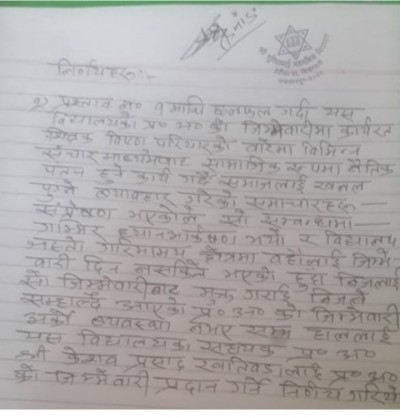 निर्णयहरु:-
१) प्रस्ताव नं० १ माथि छलफल गर्दा यस
विद्यालयको प्र० अ० को जिम्मेवारीमा कार्यरत
शिक्षक विष्णु परियारको बारेमा विभिन्न
संचार माध्यमबाट सामाजिक रुपमा नैतिक
पतन हुने कार्य गर्दै समाजलाई खलल
पुग्ने व्यवहार गरेको समाचारहरु
संप्रेषण भएकोले सो सम्बन्धमा
गम्भिर ध्यानआकर्षण भयो र विद्यालय
जस्तो गरिमामय क्षेत्रमा वहाँलाई जिम्मे-
वारी दिन नसकिने भएको हुदा निजलाई
सो जिम्मेवारीबाट मुक्त गराई निजले
सम्हाल्दै आएको प्र० अ० को जिम्मेवारी
अर्को व्यवस्था नभए सम्म हाललाई
यस विद्यालयका सहायक प्र० अ०
श्री केशव प्रसाद खतिवडालाई प्र० अ०
को जिम्मेवारी प्रदान गर्ने निर्णय गरियो